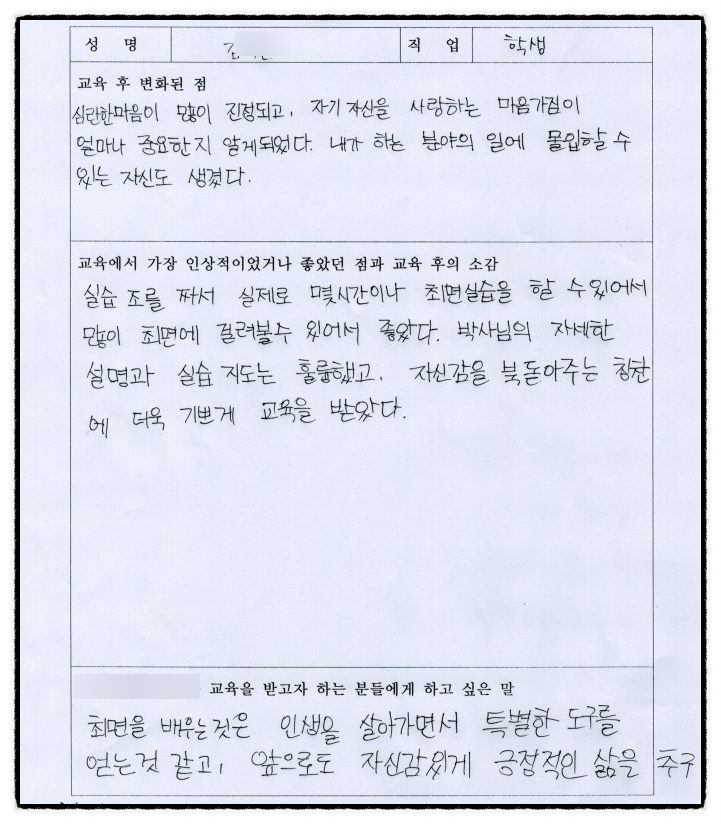 성 명 직 업 학생
교육 후 변화된 점
심란한마음이 많이 진정되고, 자기 자신을 사랑하는 마음가짐이
얼마나 중요한지 알게되었다. 내가 하는 분야의 일에 몰입할 수
있는 자신도 생겼다.
교육에서 가장 인상적이었거나 좋았던 점과 교육 후의 소감
실습 조를 짜서 실제로 몇시간이나 최면실습을 할 수 있어서
많이 최면에 걸려볼수 있어서 좋았다. 박사님의 자세한
설명과 실습 지도는 훌륭했고, 자신감을 북돋아주는 칭찬
에 더욱 기쁘게 교육을 받았다.
교육을 받고자 하는 분들에게 하고 싶은 말
최면을 배우는것은 인생을 살아가면서 특별한 도구를
얻는것 같고, 앞으로도 자신감있게 긍정적인 삶을 추구